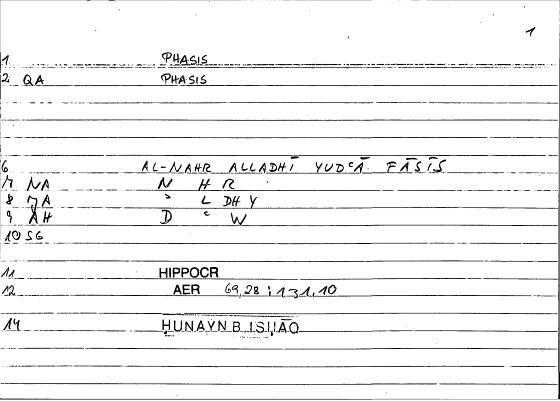 1
1 PHASIS
2 QA PHASIS
6 AL-NAHR ALLADHĪ YUDʿĀ FĀSĪS
7 NA N H R
8 ʾA ʾ L DH Y
9 AH D ʿ W
10 SG
11 HIPPOCR
12 AER 69,28 ; 131,10
14 ḤUNAYN B. ISḤĀQ